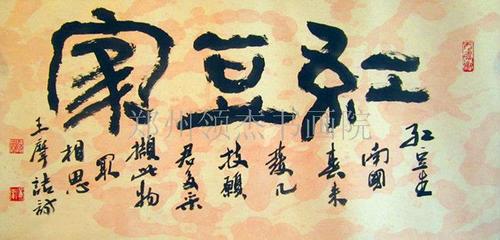 红豆家
红豆生
南國
春来
發几
枝願
君多采
擷此物
最
相思
王摩詰詩
郑州领杰书画院